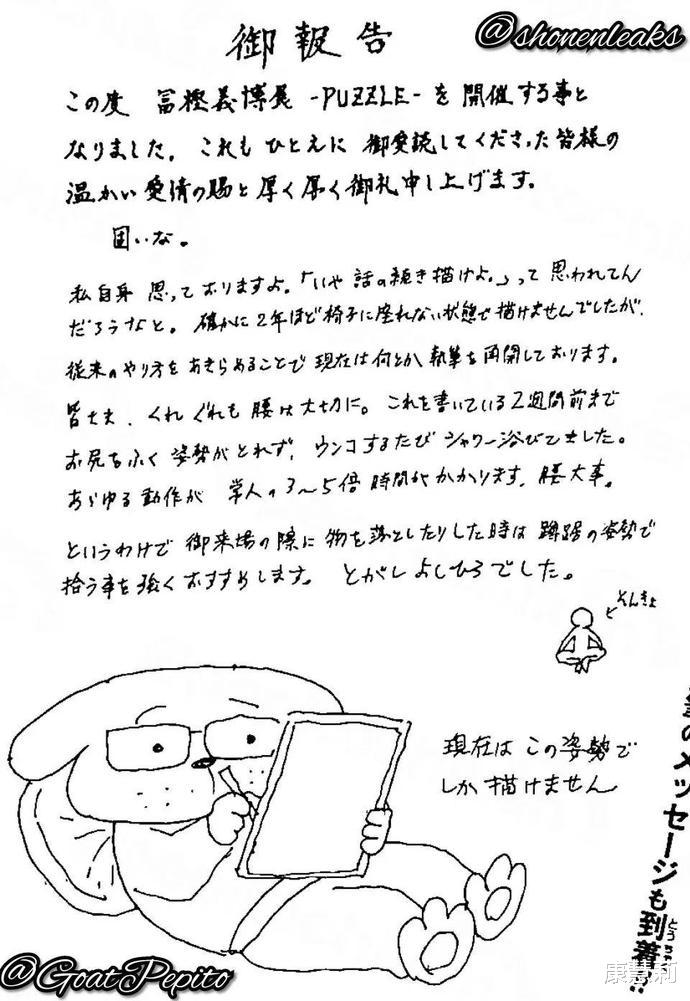 @shonenleaks
御報告
この度 冨樫義博展 -PUZZLE- を開催する事と
なりました。これもひとえに御愛読してくださった皆様の
温かい愛情の賜と厚く厚く御礼申し上げます。
固いな。
私自身思っておりますよ。「いや話の続き描けよ。」って思われてん
だろうなと。確かに2年ほど椅子に座れない状態で描けませんでしたが、
従来のやり方をあきらめることで現在は何とか執筆を再開しております。
皆さま、くれぐれも腰は大切に。これを書いている2週間前まで
お尻をふく姿勢がとれず、ウンコするたびシャワー浴びてました。
あらゆる動作が常人の3〜5倍時間がかかります。腰大事。
というわけで御来場の際に物を落としたりした時は蹲踞の姿勢で
拾う事を強くおすすめします。とがしよしひろでした。
そんきょ
現在はこの姿勢で
しか描けません
のメッセージも到着!?
とうちゃく
@GoatPepito
康慧莉